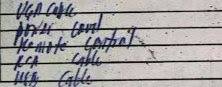 VGA Cable
Power Cord
Remote Control
RCA Cable
USB Cable